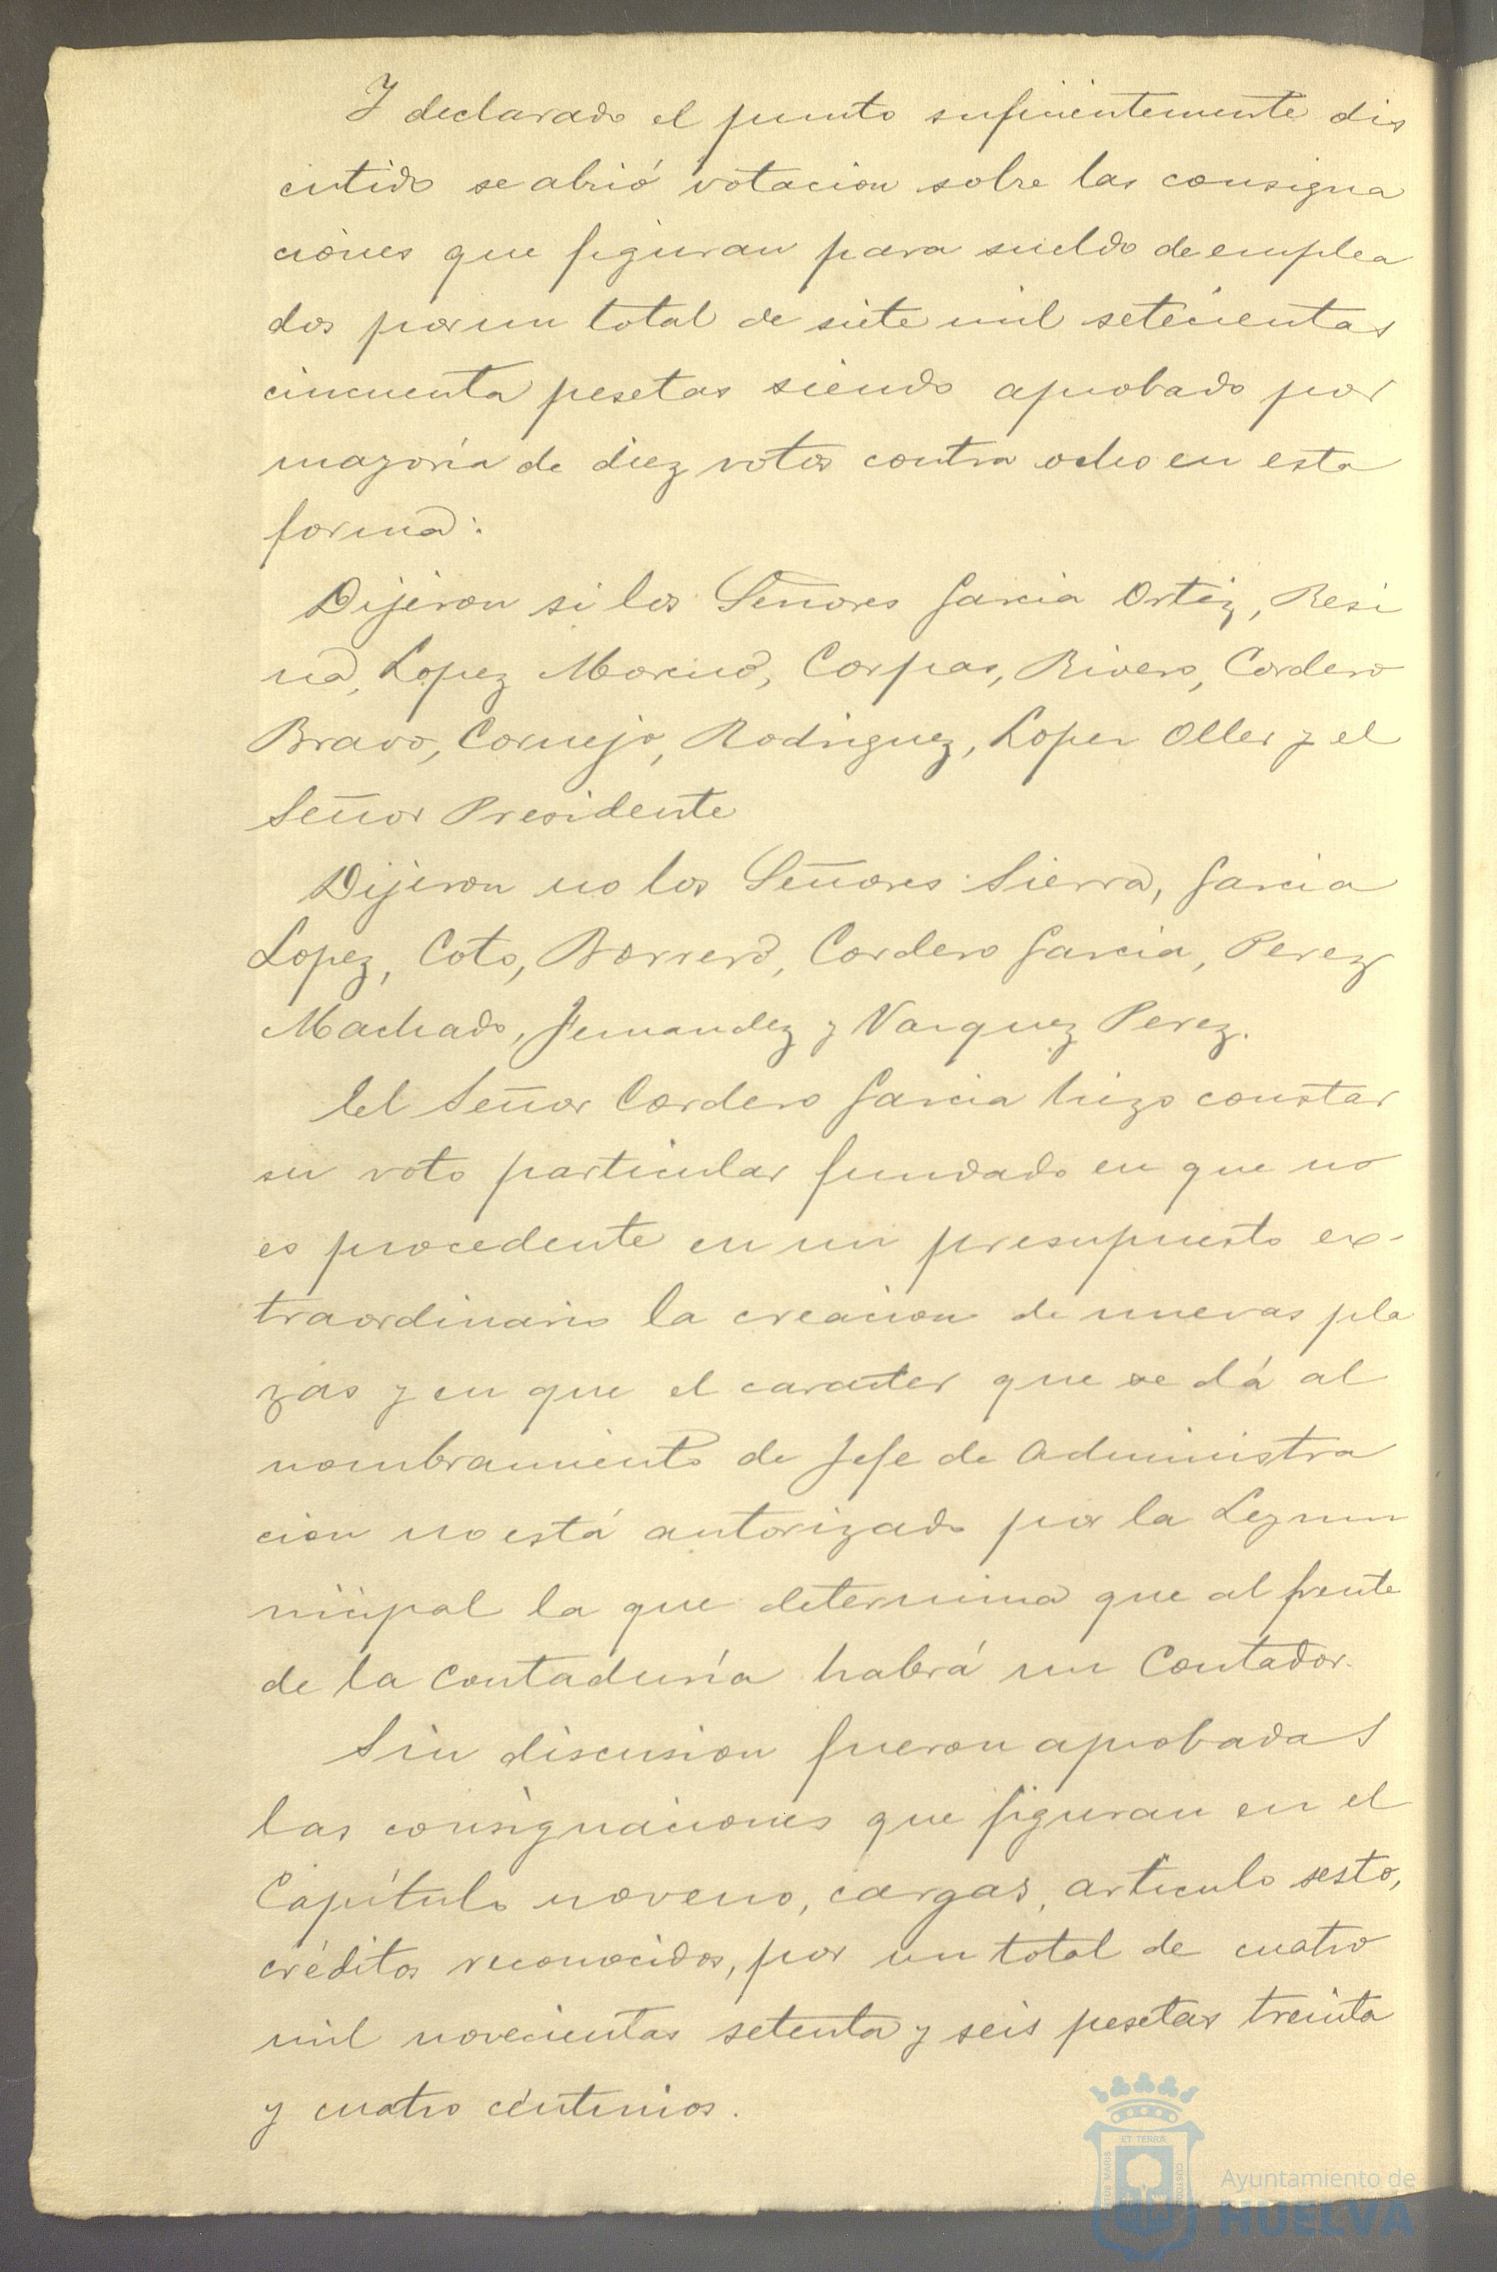 Y declarado el punto suficientemente dis
cutido se abrió votacion sobre las consigna
ciones que figuran para sueldo de emplea
dos por un total de siete mil setecientas
cincuenta pesetas siendo aprobado por
mayoría de diez votos contra ocho en esta
forma:
Dijeron si los Señores Garcia Ortiz, Resi
na, Lopez Moreno, Corpas, Rivero, Cordero
Bravo, Cornejo, Rodriguez, Lopez Oller y el
Señor Presidente
Dijeron no los Señores Sierra, Garcia
Lopez, Coto, Borrero, Cordero Garcia, Perez
Machado, Fernandez y Vazquez Perez.
El Señor Cordero Garcia hizo constar
su voto particular fundado en que no
es procedente en un presupuesto ex-
traordinario la creacion de nuevas pla
zas y en que el caracter que se dá al
nombramiento de Jefe de Administra
cion no está autorizado por la Ley mu
nicipal la que determina que al frente
de la Contaduría habrá un Contador.
Sin discusion fueron aprobadas
las consignaciones que figuran en el
Capítulo noveno, cargas, articulo sesto,
créditos reconocidos, por un total de cuatro
mil novecientas setenta y seis pesetas treinta
y cuatro céntimos.
ET TERRA
Ayuntamiento de
HUELVA